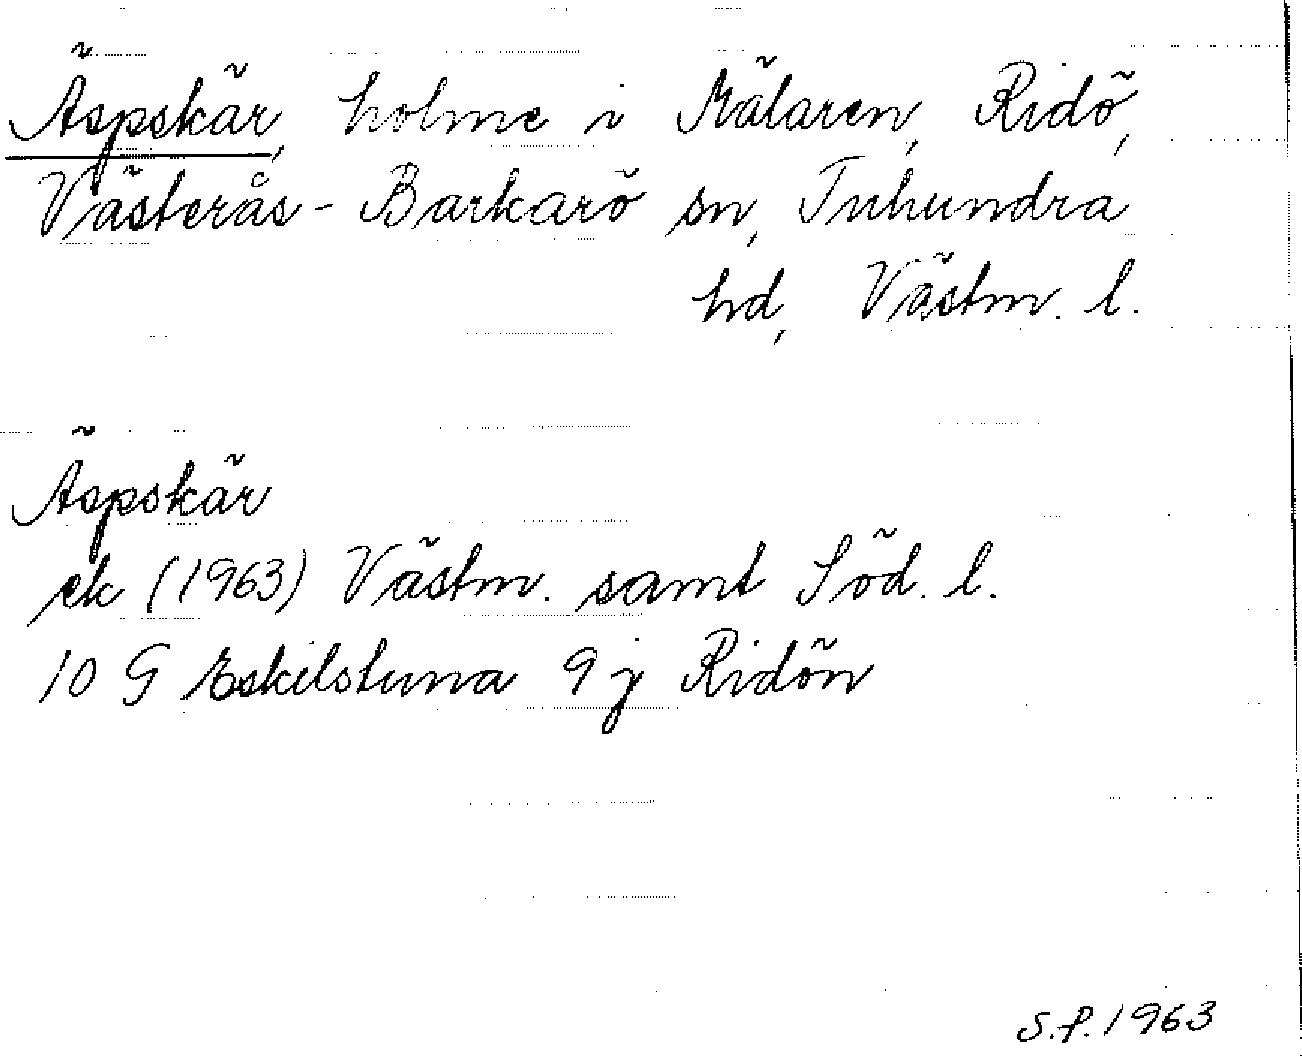 Äspskär, holme i Mälaren, Ridö,
Västerås-Barkarö sn, Tuhundra
hd, Västm. l.
Äspskär
ek (1963) Västm. samt Söd. l.
10 G Eskilstuna 9 j Ridön
S.P. 1963